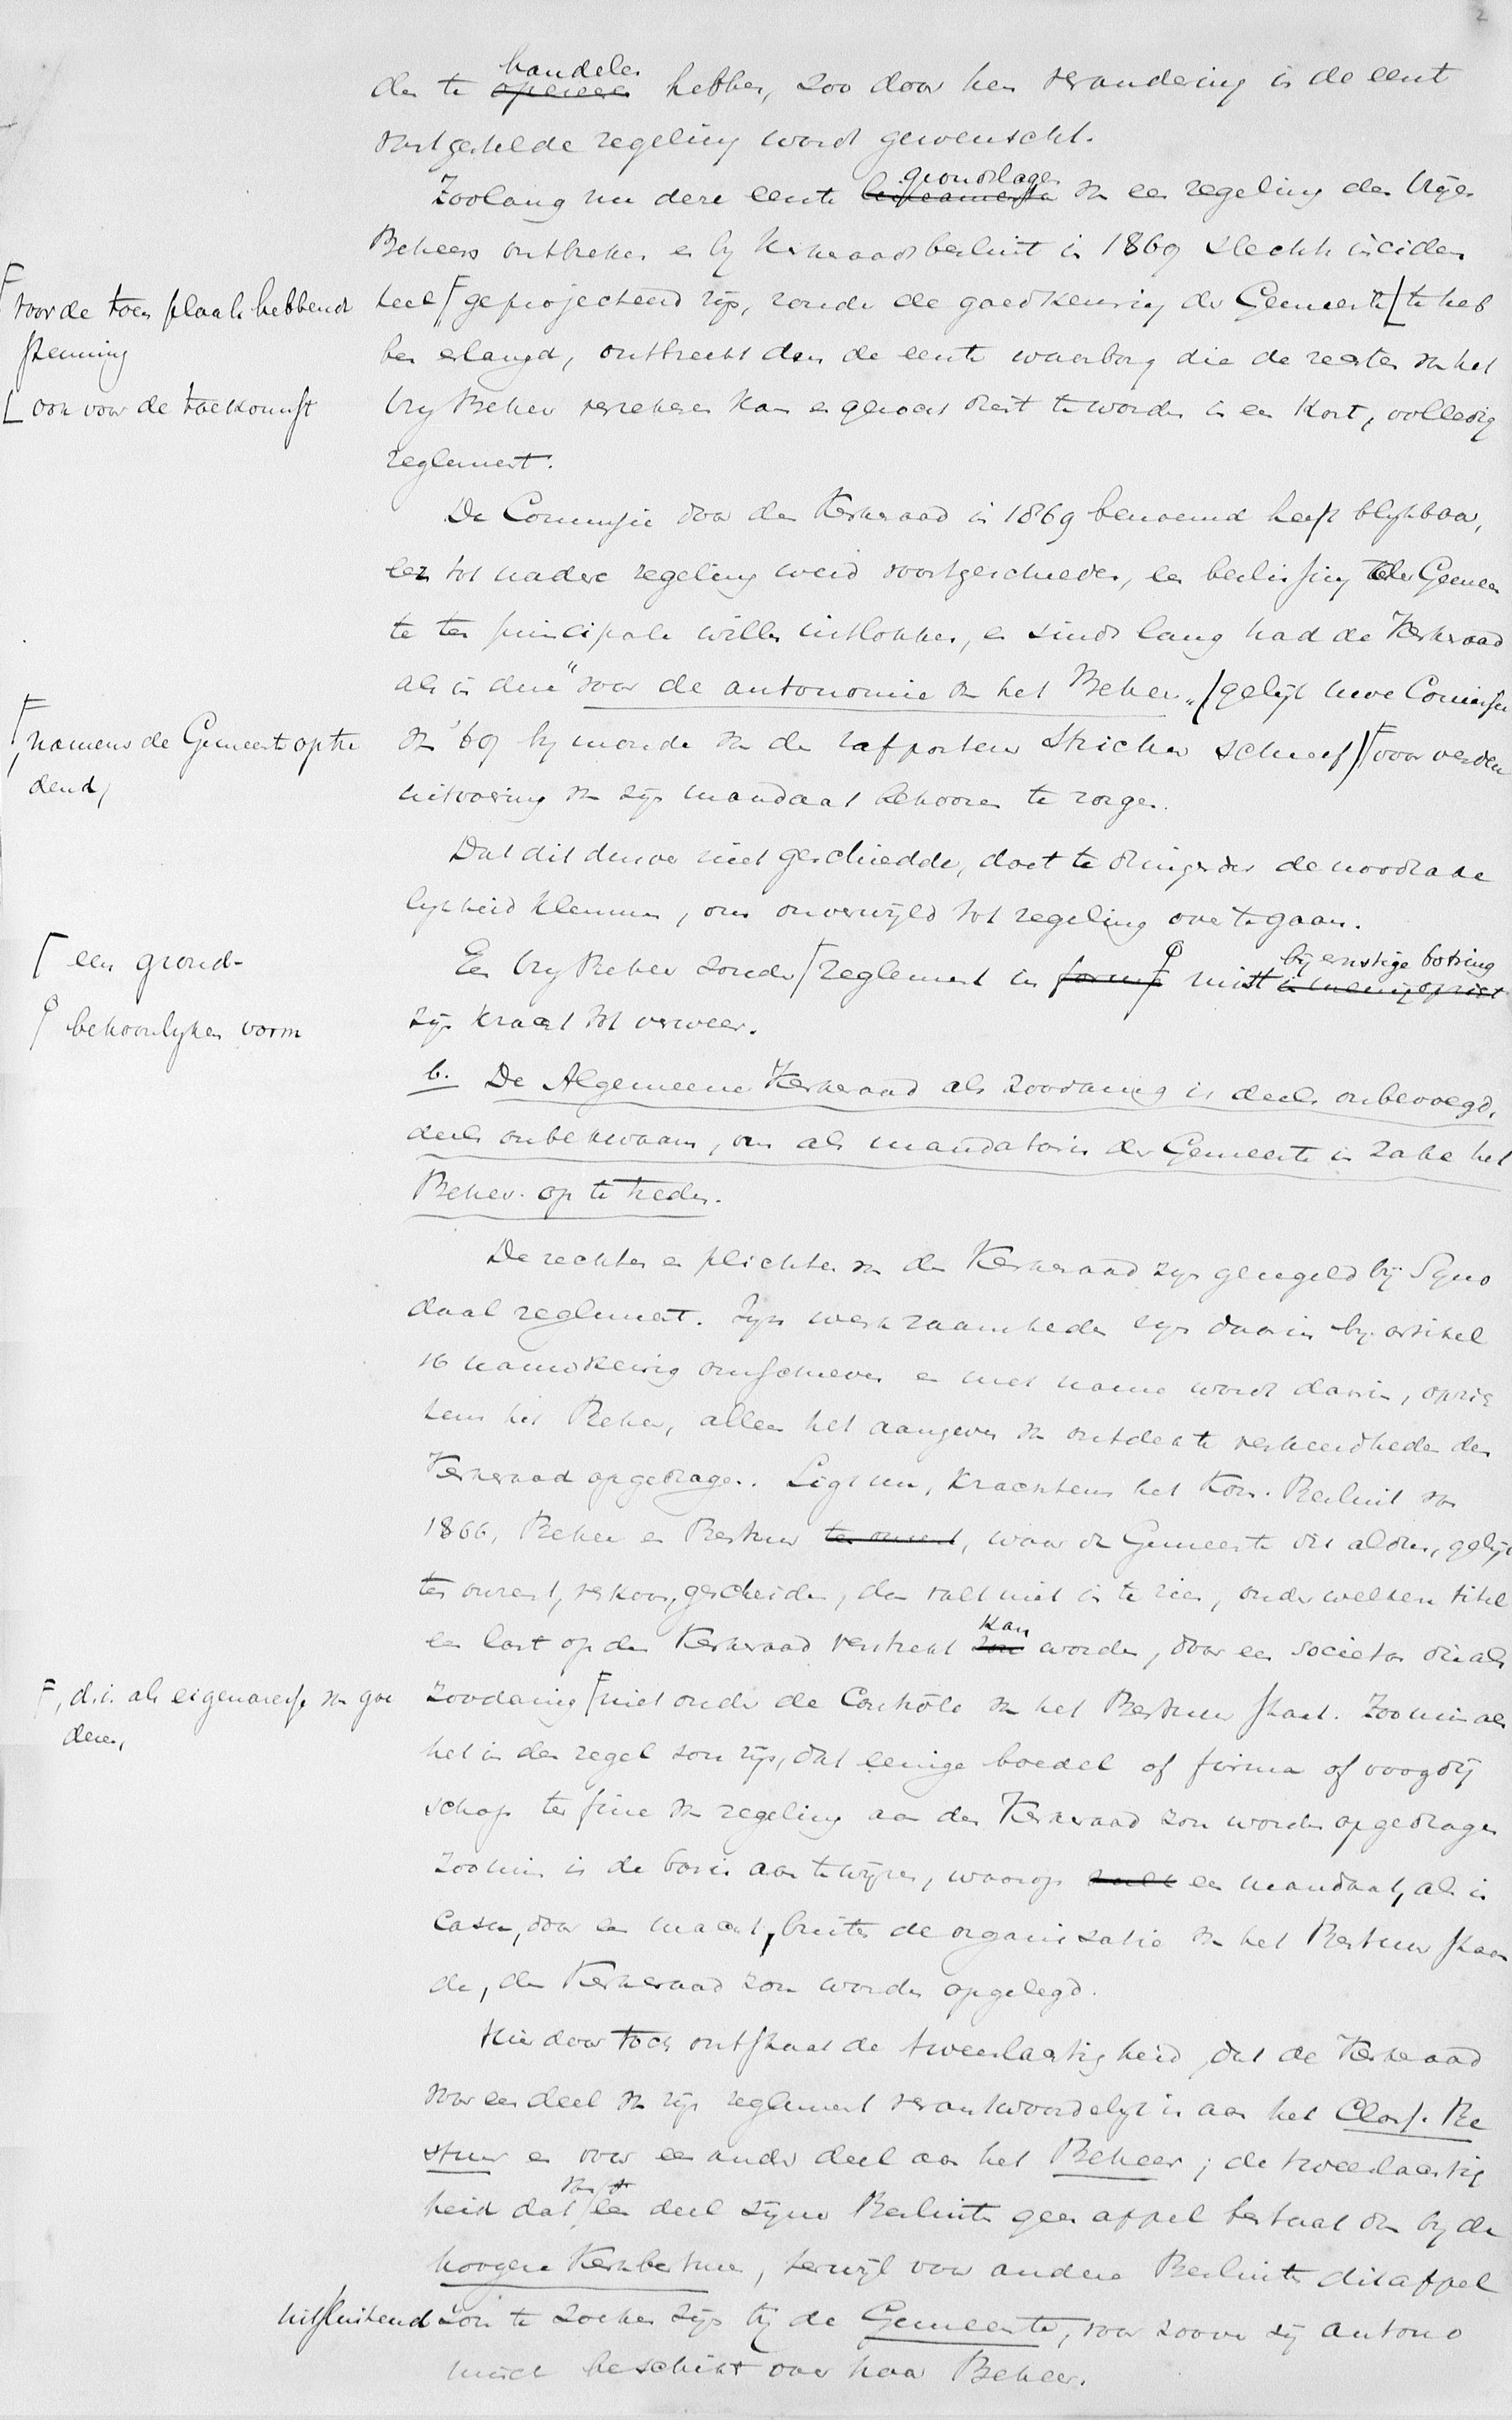 2
handelen
den te opereeren hebben, zoo door hen verandering in de eent
vastgestelde regeling word gewenscht.
grondslagen
Zoolang nu deze eerste van een regeling des Vrijen
Beheers ontbreken en by Kerkeraadsbesluit in 1869 slechts inciden
teel geprojecteerd zijn, zonder de goedkeuring der Gemeente te heb
voor de toen plaats hebbende
stemming
ben erlangd, ontbreekt dan de eerste waarborg die de rechten van het
ook voor de toekomst
vry Beheer verzekeren kan en genoest dient te worden in een kort, volledig
reglement.
De Commissie door den Kerkeraad in 1869 benoemd heeft blykbaar,
eer tot nadere regeling werd voortgeschreden, een beslissing der Gemeen
te ten principale willen uitlokken, en sinds lang had de Kerkeraad
als in deze "voor de autonomie van het Beheer" (gelijk Uwe Commissie
van '69 by monde van den rapporteur Stricker schreef) voor verdere
namens de Gemeente optre
dend,
uitvoering van zijn mandaat behooren te zorgen.
Dat dit dusver niet geschiedde, doet te dringender de noodzake
lykheid klemmen, om onverwijld tot regeling over te gaan.
een grond-
Een vry Beheer zonder reglement in forma mist
by ernstige botsing
behoorlyken vorm
zijn kracht tot verweer.
b. De Algemeene Kerkeraad als zoodanig is deels onbevoegd,
deels onbekwaam, om als mandataris der Gemeente in zake het
Beheer op te treden.
De rechten en plichten van den Kerkeraad zijn geregeld bij Syno
daal reglement. Zijn werkzaamheden zijn daarin by artikel
16 nauwkeurig omschreven en met name wordt daarin, opzich
tens het Beheer, alleen het aangeven van ontdekte verkeerdheden den
Kerkeraad opgedragen. Zijn nu, krachtens het Kon. Besluit van
1866, Beheer en Bestuur ten onzent, waar de Gemeente dit aldus, gelijk
ten onzent, verkoos, gescheiden, dan valt niet in te zien, onder welken titel
kan
een last op den Kerkeraad verstrekt zou worden, door een societas die als
zoodanig niet onder de Contrôle van het Bestuur staat. Zoomin als
, d.i. als eigenaresse van goe
deren,
het in den regel zou zijn, dat eenige boedel of firma of voogdij
schap ten fine van regeling aan den Kerkeraad zou worden opgedragen
zoomin is de basis aan te wijzen, waarop een mandaat, als in
casu, door een macht, buiten de organisatie van het Bestuur staan
de, den Kerkeraad zou worden opgelegd.
Hierdoor toch ontstaat de tweeslachtigheid, dat de Kerkeraad
voor een deel van zijn reglement verantwoordelijk is aan het Class. Be
stuur en voor een ander deel aan het Beheer; de tweeslachtig
heid dat van een deel zijner Besluiten geen appel bestaat dan by de
hoogere Kerkbesturen, terwijl voor andere Besluiten dit appel
uitsluitend zou te zoeken zijn bij de Gemeente, voor zoover zij autono
misch beschikt over haar Beheer.